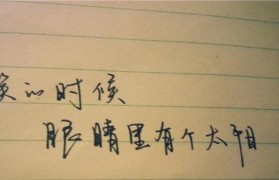 笑的时候
眼睛里有个太阳